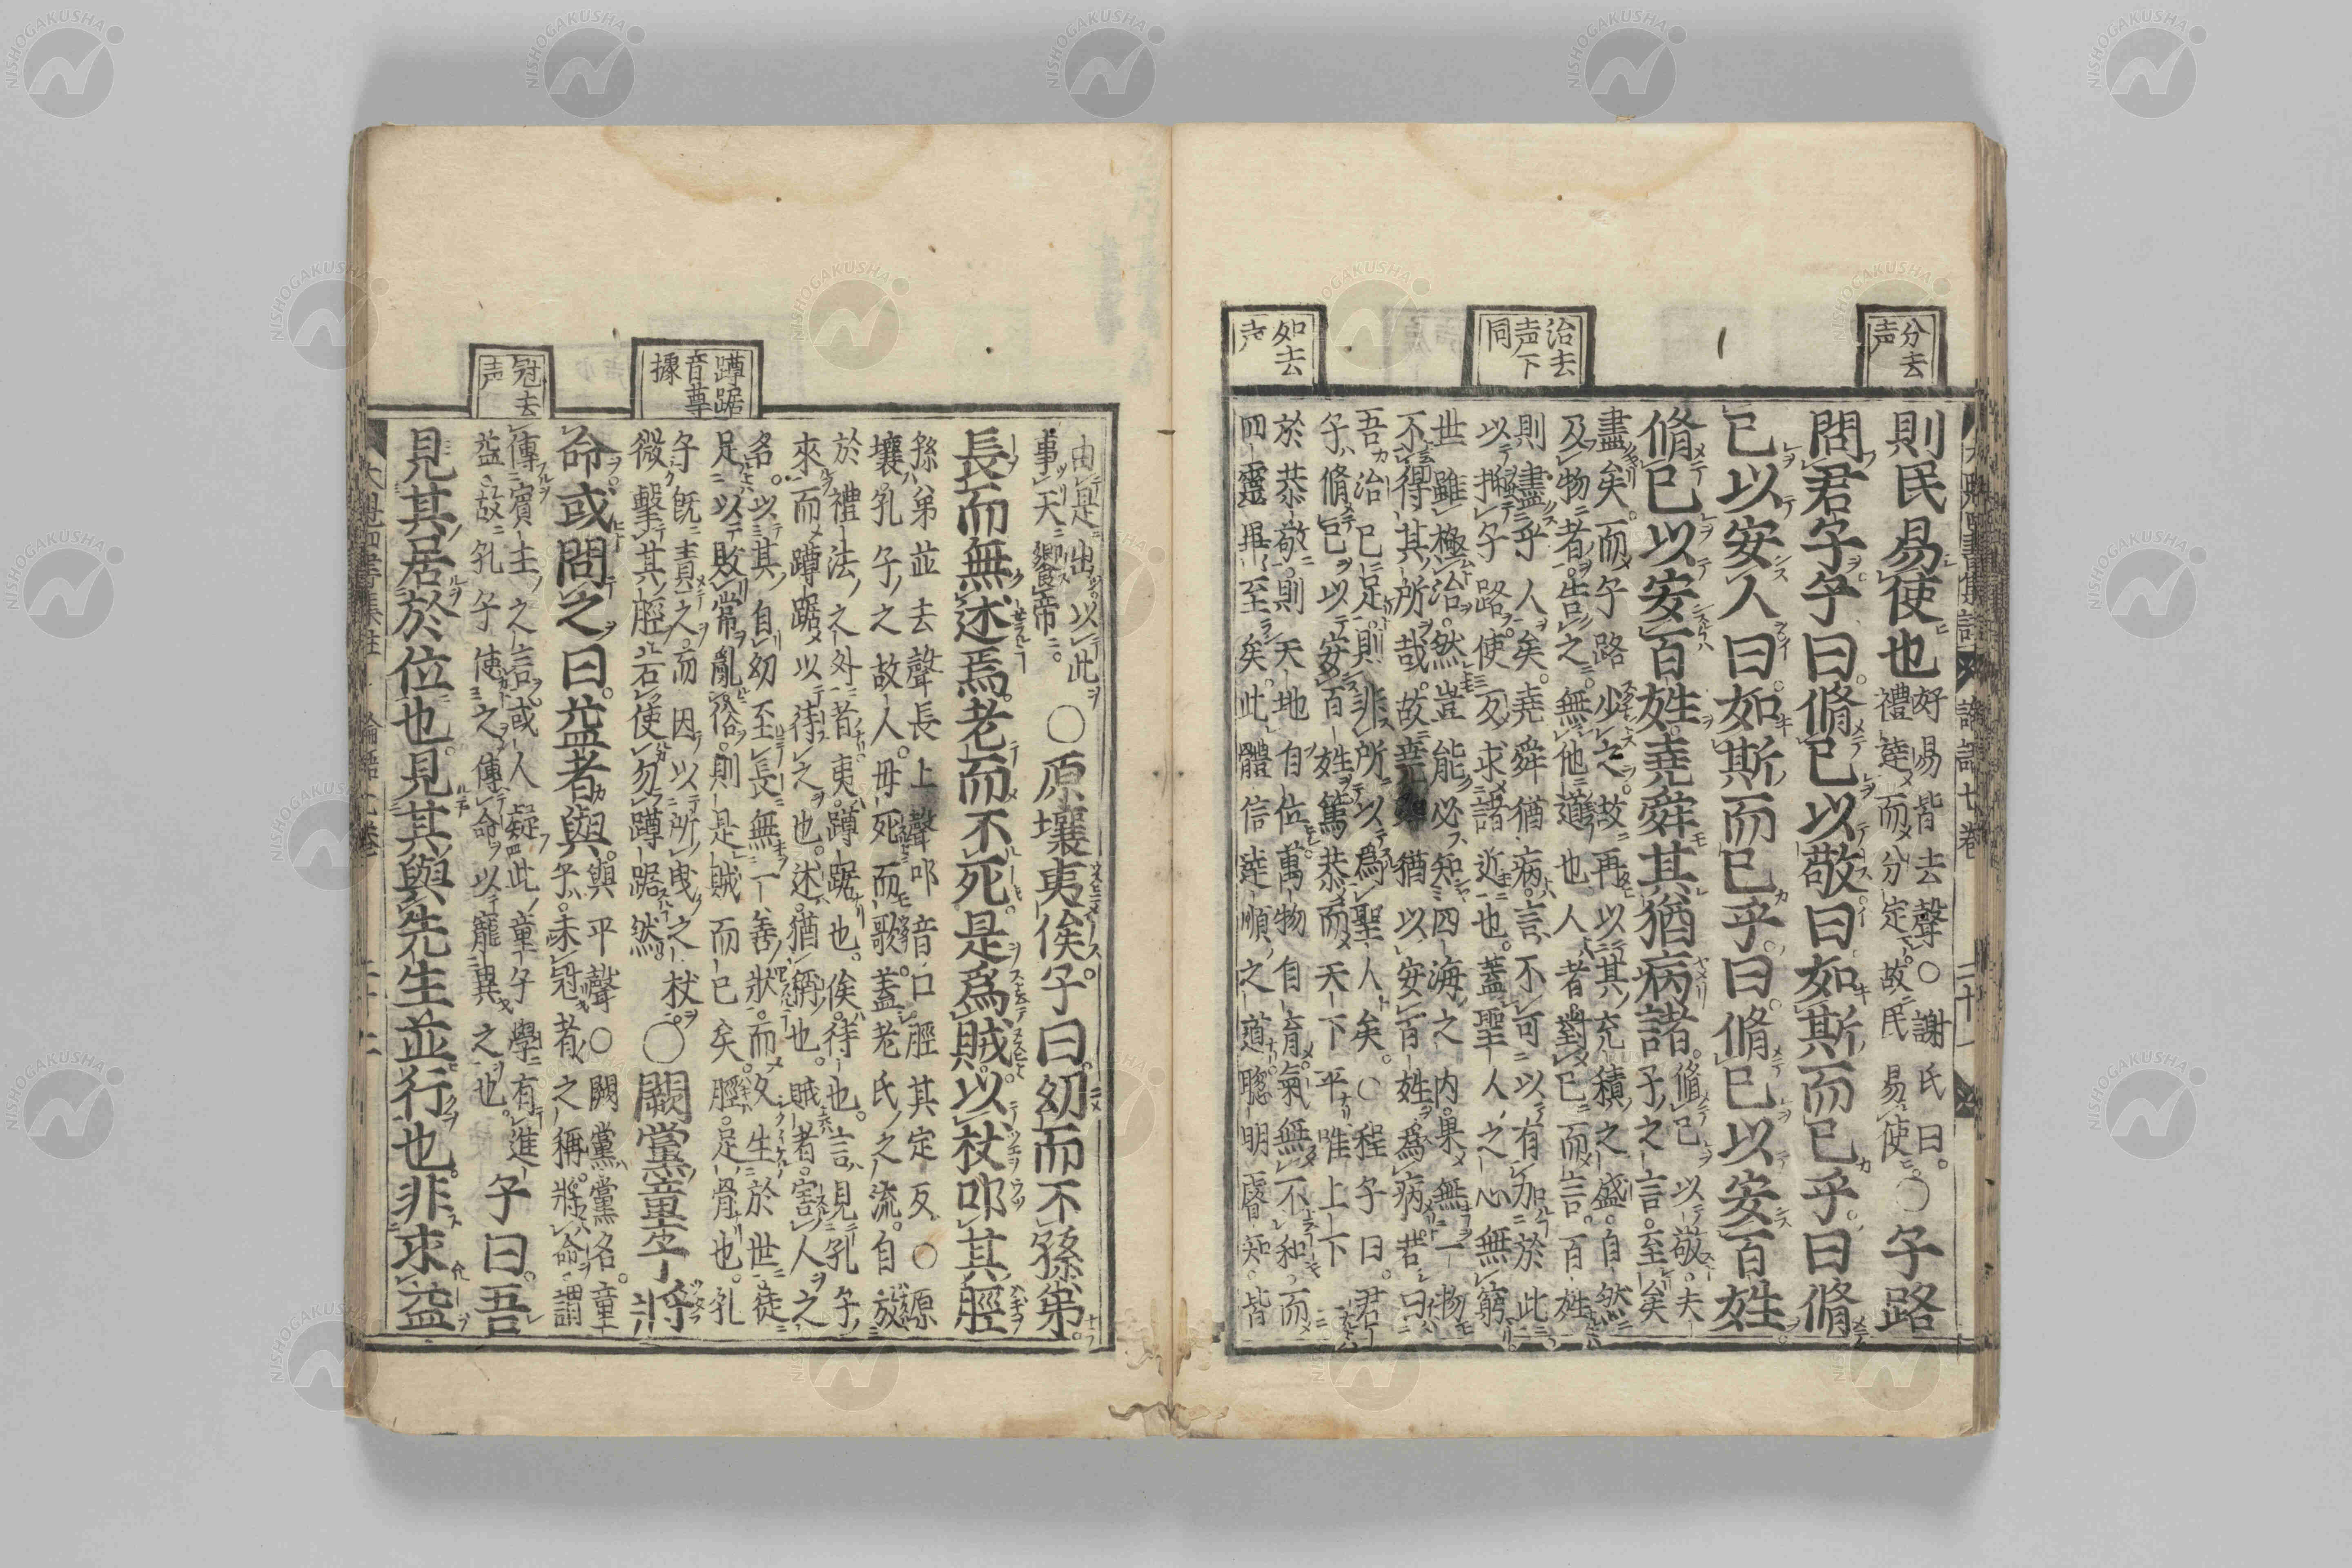 分去
声
治去
声下
同
如去
声
則民易使也
好易皆去聲○謝氏曰
禮達而分定故民易使
○子路
問君子子曰脩己以敬曰如斯而已乎曰脩
己以安人曰如斯而已乎曰脩己以安百姓
脩己以安百姓堯舜其猶病諸
脩己以敬夫
子之言至矣
盡矣而子路少之故再以其充積之盛自然
及物者告之無他道也人者對己而言百姓
則盡乎人矣堯舜猶病言不可以有加於此
以抑子路使反求諸近也蓋聖人之心無窮
世雖極治然豈能必知四海之内果無一物
不得其所哉故堯舜猶以安百姓爲病若曰
吾治已足則非所以爲聖人矣○程子曰君
子脩己以安百姓篤恭而天下平唯上下一
於恭敬則天地自位萬物自育氣無不和而
四靈畢至矣此體信達順之道聰明睿知皆
由是出以此
事天饗帝
○原壤夷俟子曰幼而不孫弟
長而無述焉老而不死是爲賊以杖叩其脛
孫弟並去聲長上聲叩音口脛其定反○原
壤孔子之故人母死而歌蓋老氏之流自放
於禮法之外者夷蹲踞也俟待也言見孔子
來而蹲踞以待之也述猶稱也賊者害人之
名以其自幼至長無一善狀而久生於世徒
足以敗常亂俗則是賊而已矣脛足骨也孔
子既責之而因以所曳之杖
微擊其脛若使勿蹲踞然
○闕黨童子將
命或問之曰益者與
與平聲○闕黨黨名童
子未冠者之稱將命謂
傳賓主之言或人疑此童子學有進
益故孔子使之傳命以寵異之也
子曰吾
見其居於位也見其與先生並行也非求益
蹲踞
音尊
據
冠去
声